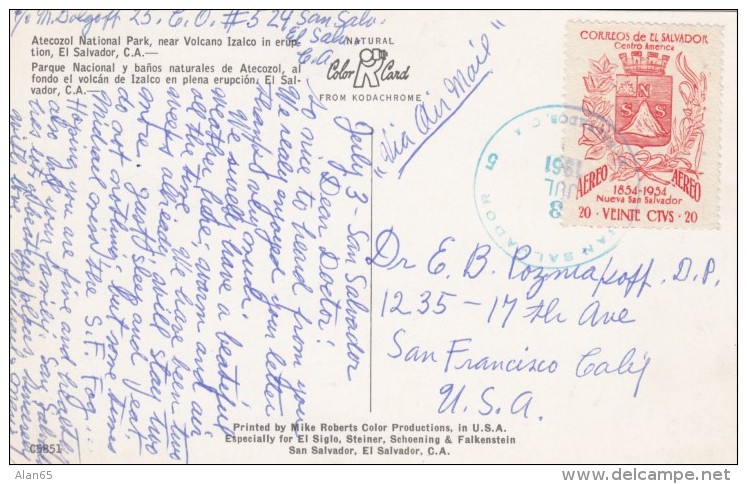 c/o M. Dolgoff 25. C. O. #524 San Salv.
El Salv.
C.A.
Atecozol National Park, near Volcano Izalco in erup-
tion, El Salvador, C.A.—
Parque Nacional y baños naturales de Atecozol, al
fondo el volcán de Izalco en plena erupción, El Sal-
vador, C.A.—
NATURAL
Color Card
FROM KODACHROME
"Via Air Mail"
CORREOS DE EL SALVADOR
Centro America
N
S S
AEREO AEREO
1854-1954
Nueva San Salvador
20 · VEINTE CTVS · 20
SAN SALVADOR
3
JUL
1961
5
July 3 - San Salvador
Dear Doctor!
So nice to heard from you
We really enjoyed your letter
Thanks very much.
We surely have a beatiful
weather, here, warm and air
all the time. We have been two
weeks already, will stay two
more. Just sleep and eat.
do not nothing, but some times
Michael miss the S.F. Fog.
Hoping you are fine and health
also all your family. San Salva
Dr. E. B. Pozmakoff. D.P.
1235 - 17 th Ave
San Francisco Calif
U. S. A.
Printed by Mike Roberts Color Productions, in U.S.A.
Especially for El Siglo, Steiner, Schoening & Falkenstein
San Salvador, El Salvador, C.A.
C5851
Alan65